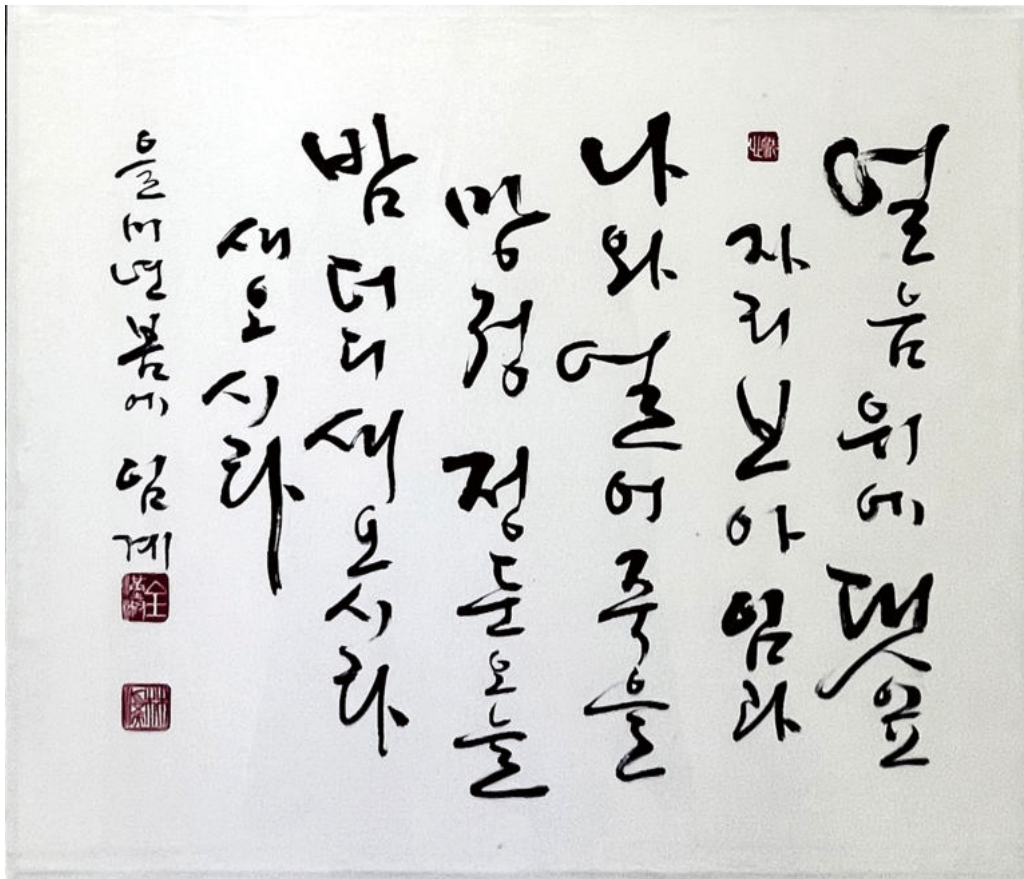 얼음 위에 댓잎
자리 보아 임과
나와 얼어 죽을
망정 정둔 오늘
밤 더디 새오시라
새오시라
을미년 봄에 임계